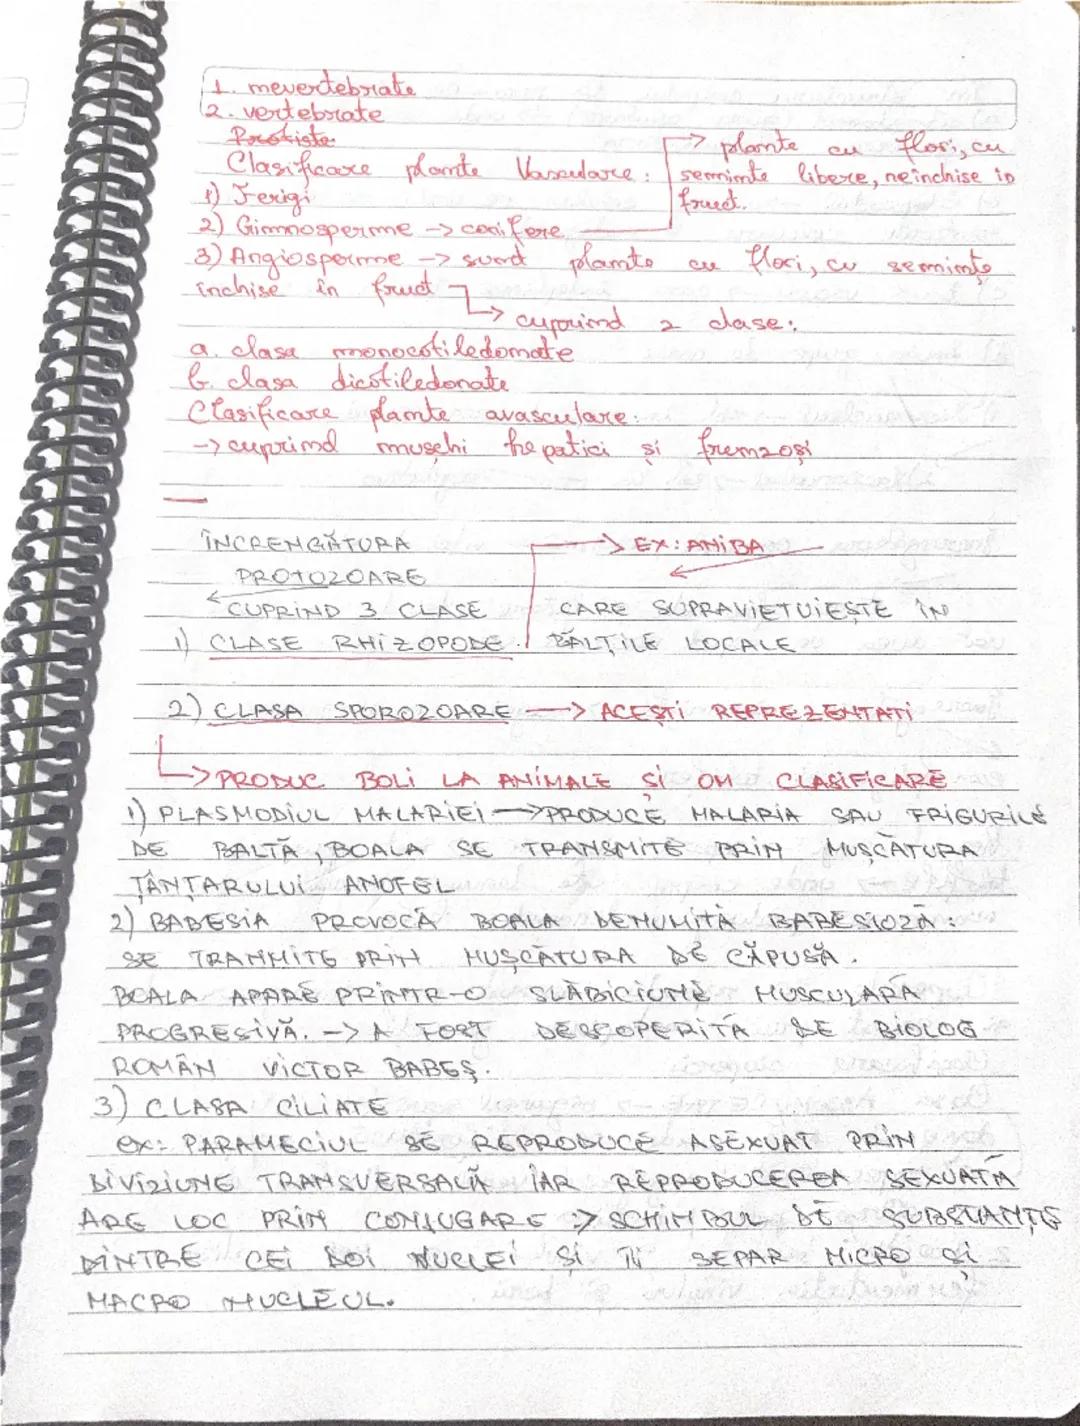 1. nevertebrate
2. vertebrate
Protiste
Clasificare plante Vasculare:
→ plante cu flori, cu
seminte libere, neînchise in
fruct.
1) Ferigi
2) Gimnosperme → conifere
3) Angiosperme → sunt plante cu flori, cu seminţe
închise în fruct
→ cuprind 2 clase:
a. clasa monocotiledonate
b. clasa dicotiledonate
Clasificare plante avasculare:
→ cuprind muşchi hepatici şi frunzoşi
ÎNCRENGĂTURA
PROTOZOARE
CUPRIND 3 CLASE
1) CLASE RHIZOPODE.
→ EX: AMIBA
CARE SUPRAVIETUIEŞTE ÎN
BĂLŢILE LOCALE
2) CLASA SPOROZOARE → ACEŞTI REPREZENTATI
→ PRODUC BOLI LA ANIMALE ŞI OM CLASIFICARE
1) PLASMODIUL MALARIEI → PRODUCE MALARIA SAU FRIGURILE
DE BALTĂ, BOALA SE TRANSMITE PRIN MUŞCĂTURA
ŢÂNŢARULUI ANOFEL
2) BABESIA PROVOCĂ BOALA DENUMITĂ BABESIOZĂ:
SE TRANMITE PRIN MUŞCĂTURA DE CĂPUŞĂ.
BOALA APARE PRINTR-O SLĂBICIUNE MUSCULARĂ
PROGRESIVĂ. → A FOST DESCOPERITĂ DE BIOLOG
ROMÂN VICTOR BABEŞ.
3) CLASA CILIATE
ex: PARAMECIUL SE REPRODUCE ASEXUAT PRIN
DIVIZIUNE TRANSVERSALĂ IAR REPRODUCEREA SEXUATĂ
ARE LOC PRIN CONJUGARE → SCHIMBUL DE SUBSTANŢE
DINTRE CEI DOI NUCLEI ŞI ÎI SEPAR MICRO ŞI
MACRO NUCLEUL.